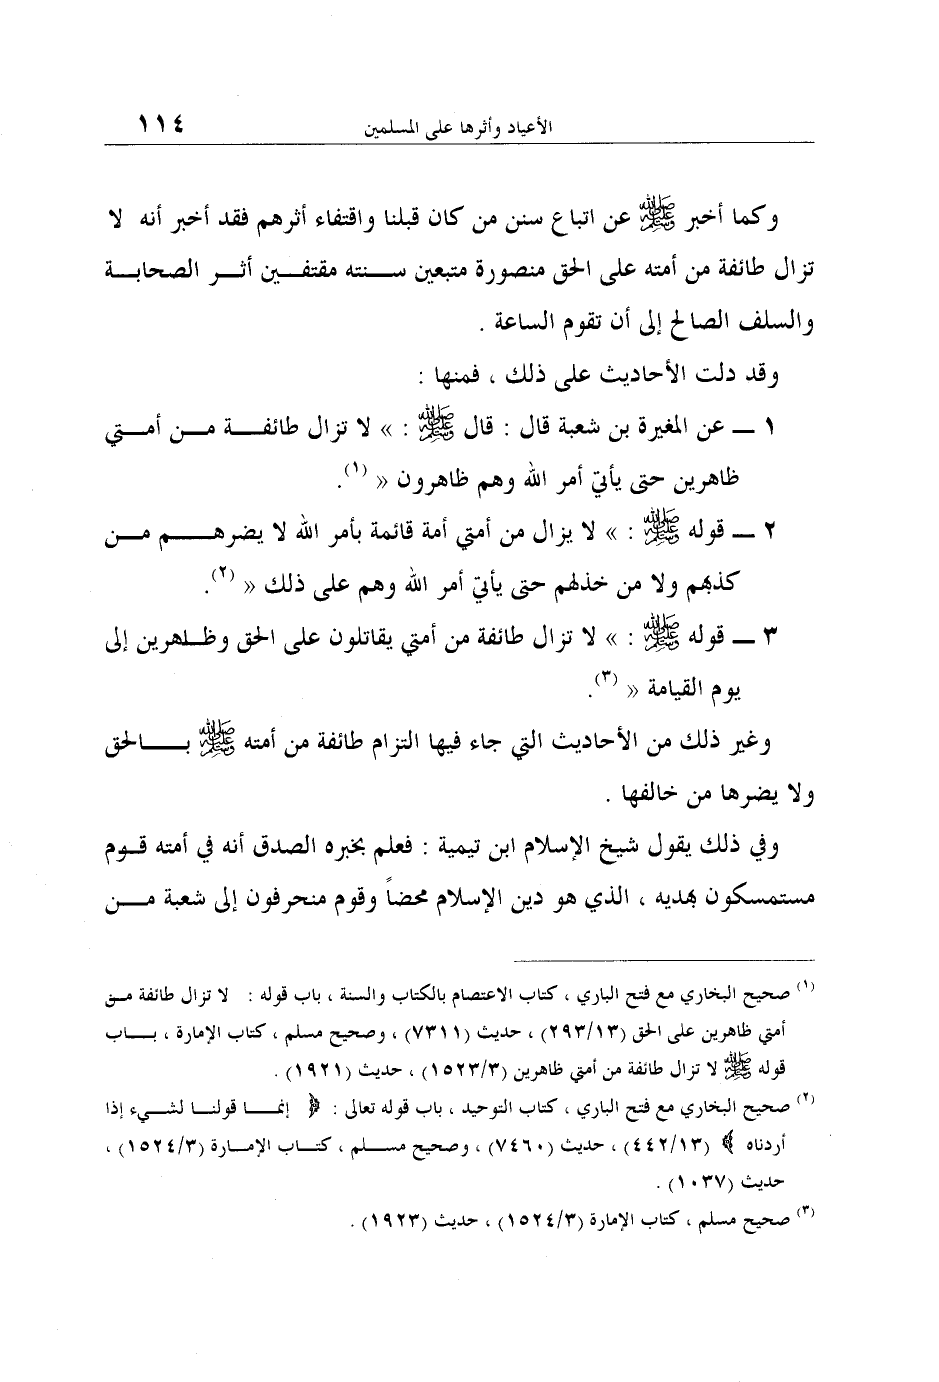 الأعياد وأثرها على المسلمين ١١٤
وكما أخبر ﷺ عن اتباع سنن من كان قبلنا واقتفاء أثرهم فقد أخبر أنه لا
تزال طائفة من أمته على الحق منصورة متبعين سنته مقتفين أثر الصحابة
والسلف الصالح إلى أن تقوم الساعة .
وقد دلت الأحاديث على ذلك ، فمنها :
١ – عن المغيرة بن شعبة قال : قال ﷺ : » لا تزال طائفة من أمتي
ظاهرين حتى يأتي أمر الله وهم ظاهرون « (١).
٢ – قوله ﷺ : » لا يزال من أمتي أمة قائمة بأمر الله لا يضرهم من
كذبهم ولا من خذلهم حتى يأتي أمر الله وهم على ذلك « (٢).
٣ – قوله ﷺ : » لا تزال طائفة من أمتي يقاتلون على الحق وظاهرين إلى
يوم القيامة « (٣).
وغير ذلك من الأحاديث التي جاء فيها التزام طائفة من أمته ﷺ بالحق
ولا يضرها من خالفها .
وفي ذلك يقول شيخ الإسلام ابن تيمية : فعلم بخبره الصدق أنه في أمته قوم
مستمسكون بهديه ، الذي هو دين الإسلام محضاً وقوم منحرفون إلى شعبة من
(١) صحيح البخاري مع فتح الباري ، كتاب الاعتصام بالكتاب والسنة ، باب قوله : لا تزال طائفة من
أمتي ظاهرين على الحق (٢٩٣/١٣) ، حديث (٧٣١١) ، وصحيح مسلم ، كتاب الإمارة ، باب
قوله ﷺ لا تزال طائفة من أمتي ظاهرين (١٥٢٣/٣) ، حديث (١٩٢١) .
(٢) صحيح البخاري مع فتح الباري ، كتاب التوحيد ، باب قوله تعالى : ﴿ إنما قولنا لشيء إذا
أردناه ﴾ (٤٤٢/١٣) ، حديث (٧٤٦٠) ، وصحيح مسلم ، كتاب الإمارة (١٥٢٤/٣) ،
حديث (١٠٣٧) .
(٣) صحيح مسلم ، كتاب الإمارة (١٥٢٤/٣) ، حديث (١٩٢٣) .